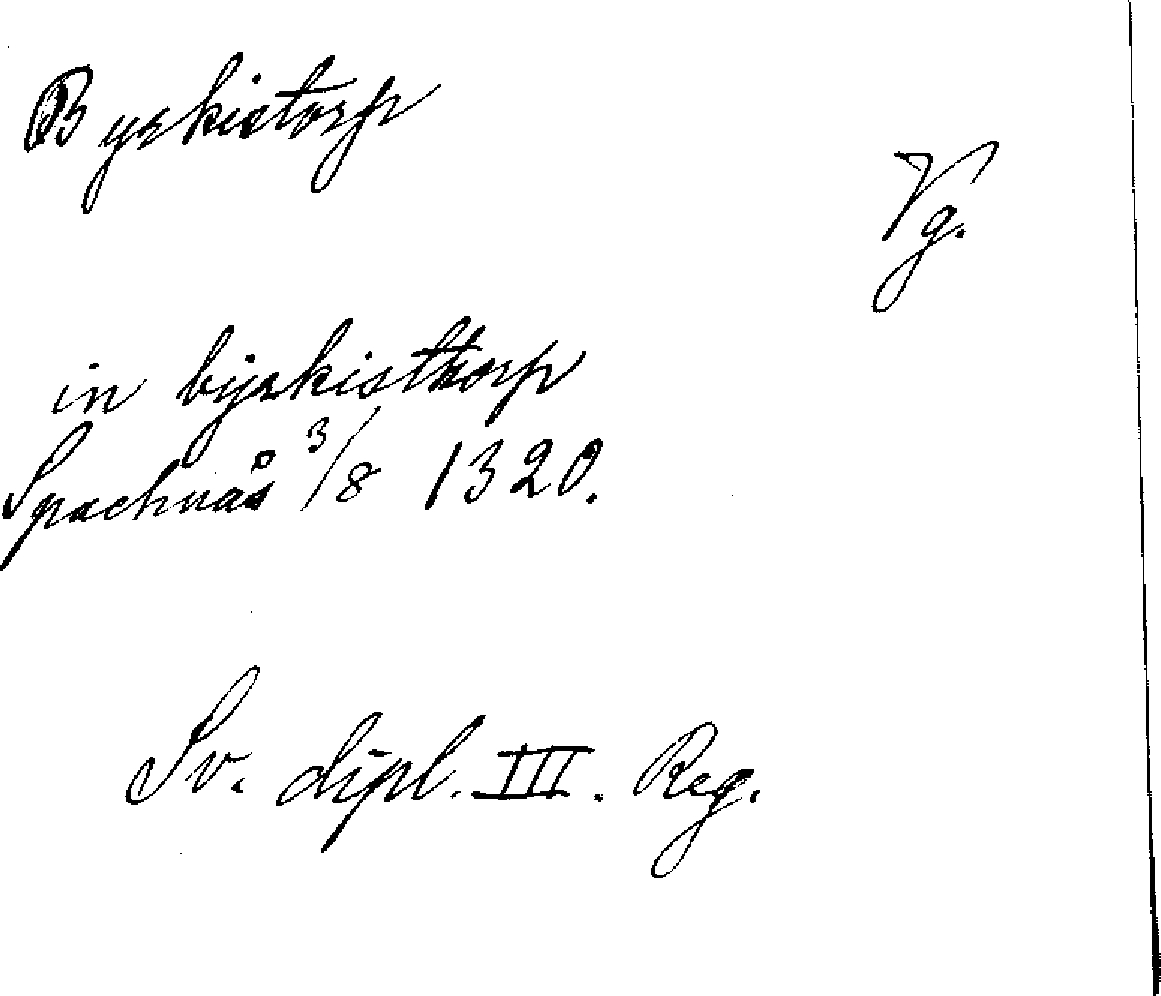 Byrkistorp
Vg.
in byrkisthorp
Spachnäs 3/8 1320.
Sv. dipl. III. Reg.